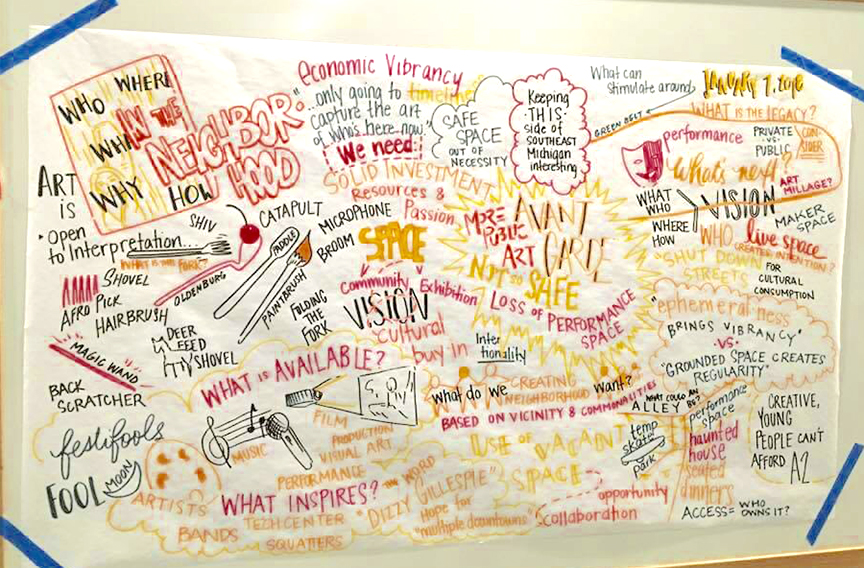 WHO
WHERE
WHAT
WHY
HOW
IN THE
NEIGHBOR-
HOOD
ART
IS
• Open
to Interpretation...
SHIV
WHAT IS THE FORK?
SHOVEL
AFRO PICK
HAIRBRUSH
OLDENBURG
CATAPULT
PADDLE
PAINTBRUSH
MICROPHONE
BROOM
FOLDING
THE
FORK
DEER
FEED
ITTY SHOVEL
MAGIC WAND
BACK
SCRATCHER
festifools
FOOL MOON
economic Vibrancy
"...only going to timeline
capture the art
of who's here now."
We need:
SOLID INVESTMENT
Resources &
Passion
SPACE
Community
Exhibition
VISION
cultural
buy in
SAFE
SPACE
OUT OF
NECESSITY
Keeping
THIS
side of
SOUTHEAST
Michigan
interesting
What can
stimulate around
GREEN BELT
JANUARY 7, 2016
WHAT IS THE LEGACY?
performance
PRIVATE
VS.
PUBLIC
CON-
SIDER
What's next?
ART
MILLAGE?
WHAT
WHO
WHERE
HOW
VISION
MAKER
SPACE
WHO
live space
CREATES INTENTION?
"SHUT DOWN
STREETS
FOR
CULTURAL
CONSUMPTION
MORE
PUBLIC
ART
AVANT
GARDE
NOT SO SAFE
LOSS OF PERFORMANCE
SPACE
Inter
tionality
"ephemeral ness
BRINGS VIBRANCY"
-VS-
"GROUNDED SPACE CREATES
REGULARITY"
WHAT IS AVAILABLE?
FILM
PRODUCTION
VISUAL ART
MUSIC
PERFORMANCE
what do we
want?
CREATING
NEIGHBORHOOD
BASED ON VICINITY & COMMONALITIES
USE OF VACANT
SPACE
WHAT COULD AN
ALLEY BE?
temp
skate
park
performance
space
haunted
house
seated
dinners
CREATIVE,
YOUNG
PEOPLE CAN'T
AFFORD A2
ACCESS = WHO
OWNS IT?
opportunity
Collaboration
WHAT INSPIRES?
ARTISTS
BANDS
TECH CENTER
SQUATTERS
THE WORD
"DIZZY GILLESPIE"
Hope for
"multiple downtowns"